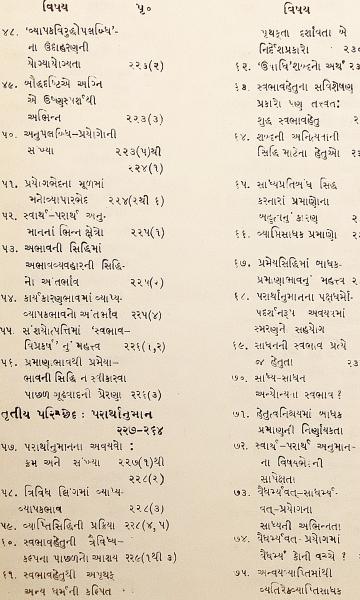 વિષય પૃ૦
૪૮. 'વ્યાપકવિરુદ્ધોપલબ્ધિ'-
ના ઉદાહરણની
યોગ્યાયોગ્યતા ૨૨૩(૨)
૪૯. બૌદ્ધદષ્ટિએ અગ્નિ
એ ઉષ્ણસ્પર્શથી
અભિન્ન ૨૨૩(૩)
૫૦. અનુપલબ્ધિ-પ્રયોગોની
સંખ્યા ૨૨૩(૫)થી
૨૨૪(૧)
૫૧. પ્રયોગભેદના મૂળમાં
મનોવ્યાપારભેદ ૨૨૪(૨થી ૬)
૫૨. સ્વાર્થ-પરાર્થ અનુ-
માનનાં ભિન્ન ક્ષેત્રો ૨૨૫(૧)
૫૩. અભાવની સિદ્ધિમાં
અભાવવ્યવહારની સિદ્ધિ-
નો અંતર્ભાવ ૨૨૫(૨)
૫૪. કાર્યકારણભાવમાં વ્યાપ્ય-
વ્યાપકભાવનો અંતર્ભાવ ૨૨૫(૪)
૫૫. સંશયોત્પત્તિમાં 'સ્વભાવ-
વિપ્રકર્ષ'નું મહત્ત્વ ૨૨૬(૧,૨)
૫૬. પ્રમાણાભાવથી પ્રમેયા-
ભાવની સિદ્ધિ ન સ્વીકારવા
પાછળ ગૂઢવાદની પ્રેરણા ૨૨૬(૩)
તૃતીય પરિચ્છેદ : પરાર્થાનુમાન
૨૨૭-૨૬૪
૫૭. પરાર્થાનુમાનના અવયવો :
ક્રમ અને સંખ્યા ૨૨૭(૧)થી
૨૨૮(૨)
૫૮. ત્રિવિધ લિંગમાં વ્યાપ્ય-
વ્યાપકભાવ ૨૨૮(૩)
૫૯. વ્યાપ્તિસિદ્ધિની પ્રક્રિયા ૨૨૮(૪,૫)
૬૦. સ્વભાવહેતુની ત્રૈવિધ્ય-
કલ્પના પાછળનો આશય ૨૨૯(૧થી ૩)
૬૧. સ્વભાવહેતુથી અપૃથક્
અન્ય ધર્મની કલ્પિત
વિષય
પૃથકતા દર્શાવતા બે
નિર્દેશપ્રકારો
૬૨. 'ઉપાધિ'શબ્દનો અર્થ
૬૩. સ્વભાવહેતુના સવિશેષણ
પ્રકારો પણ તત્ત્વત:
શુદ્ધ સ્વભાવહેતુ
૬૪. શબ્દની અનિત્યતાની
સિદ્ધિ માટેના હેતુઓ
૬૫. સાધ્યપ્રતિબંધ સિદ્ધ
કરનારાં પ્રમાણોના
બહુત્વનું કારણ
૬૬. વ્યાપ્તિસાધક પ્રમાણો
૬૭. પ્રમેયસિદ્ધિમાં બાધક-
પ્રમાણાભાવનું મહત્ત્વ
૬૮. પરાર્થાનુમાનના પક્ષધર્મો-
પદર્શનરૂપ અવયવમાં
સ્મરણને સહયોગ
૬૯. સાધનની સ્વભાવ પ્રત્યે
જ હેતુતા
૭૦. સાધ્ય-સાધન
અન્યોન્યના સ્વભાવ ?
૭૧. હેતુત્વનિશ્ચયમાં બાધક
પ્રમાણની નિર્ણાયકતા
૭૨. સ્વાર્થ-પરાર્થ અનુમાન-
ના વિષયભેદની
સાપેક્ષતા
૭૩. વૈધર્મ્યવત્-સાધર્મ્ય-
વત્-પ્રયોગના
સાધ્યની અભિન્નતા
૭૪. વૈધર્મ્યવત્-પ્રયોગમાં
વૈધર્મ્ય કોની વચ્ચે ?
૭૫. અન્વયવ્યાપ્તિમાંથી
વ્યતિરેકવ્યાપ્તિસાધક